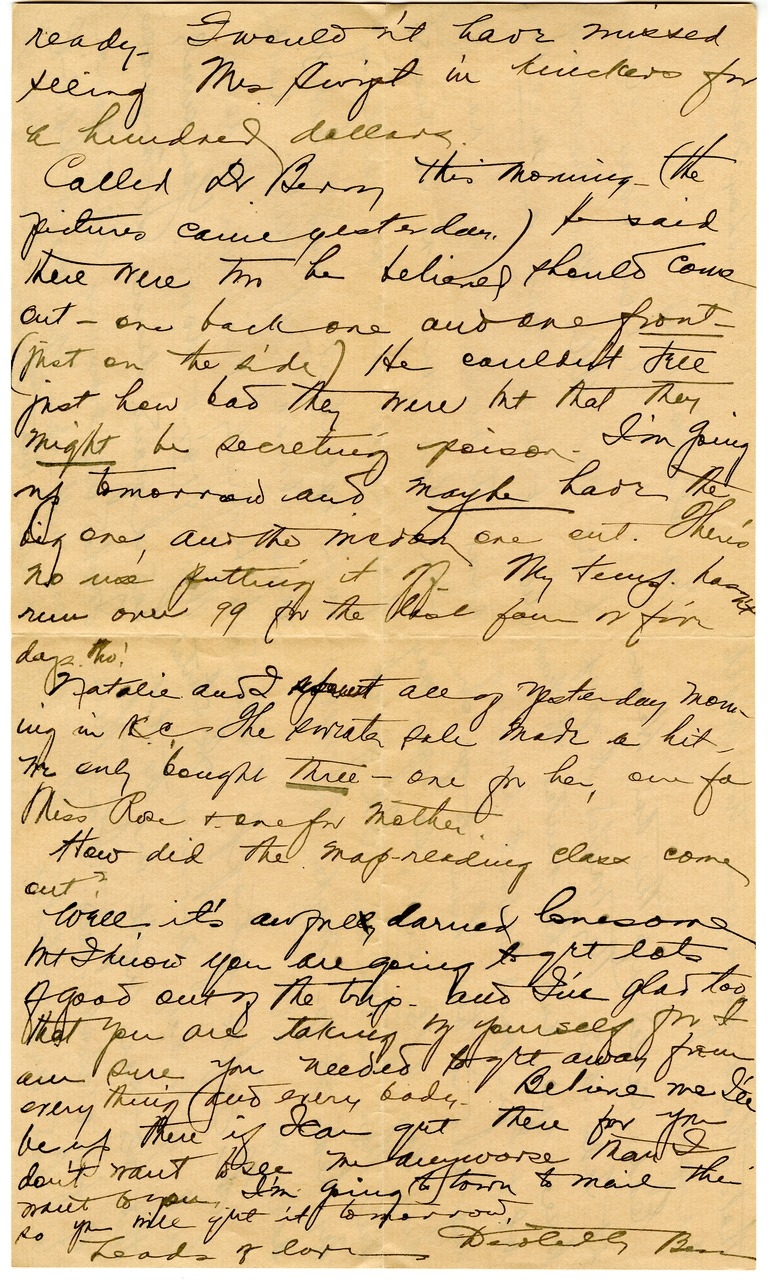 ready- I wouldn't have missed
seeing Mrs Swift in knickers for
a hundred dollars.
Called Dr Berry this morning- (the
pictures came yesterday.) He said
there were two he believed should come
out - one back one and one front-
(just on the side) He couldn't tell
just how bad they were but that they
might be secreting poison. I'm going
up tomorrow and maybe have the
big one, and the one out. There's
no use putting it off- My temp. hasn't
run over 99 for the last four or five
days tho!
Natalie and I spent all of yesterday morn-
ing in K.C. The sweater sale made a hit.
We only bought three - one for her, one for
Miss Rose + one for Mother.
How did the map-reading class come
out?
Well it's awfully darned lonesome
but I know you are going to get lots
of good out of the trip- and I'm glad too
that you are taking it by yourself for I
am sure you needed to get away from
everything (and every body- Believe me I'll
be up there if I can get there for you
don't want to see me any worse than I
want to you. I'm going to town to mail this
so you will get it tomorrow.
Loads of love - Devotedly Bess